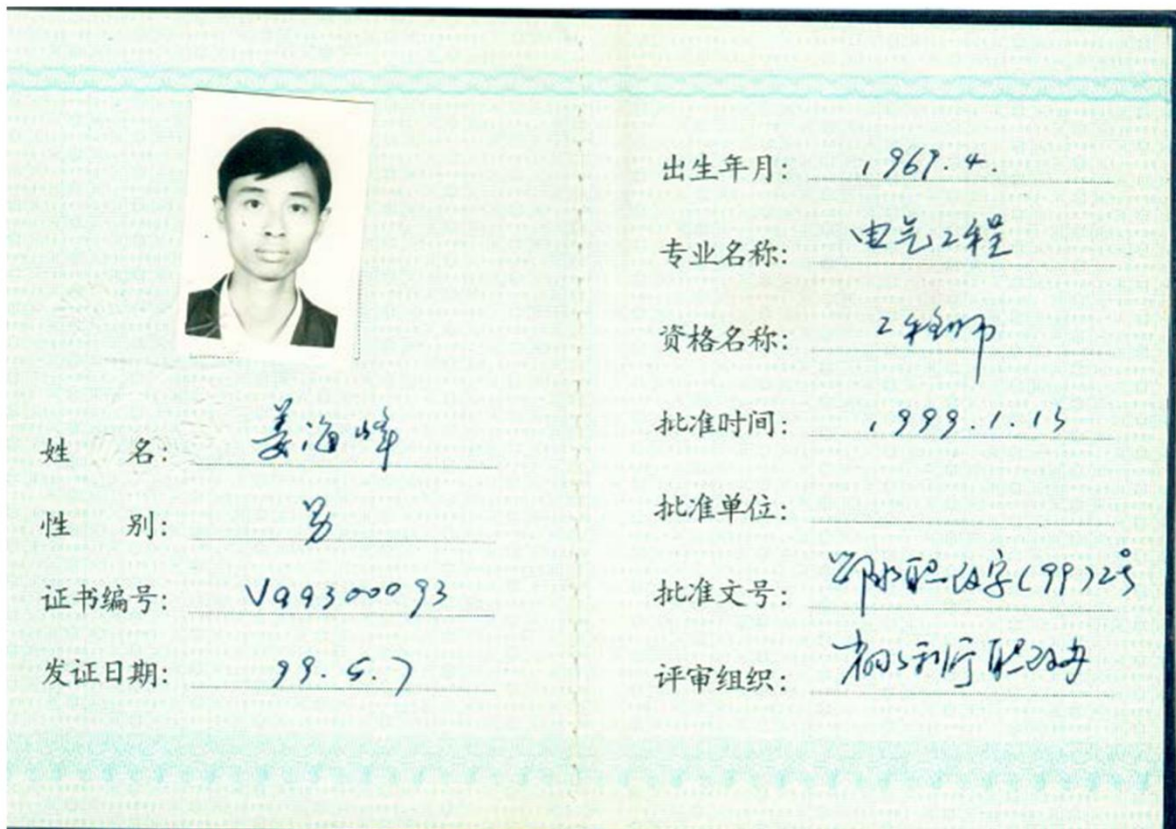 姓 名: 姜海峰
性 别: 男
证书编号: V99300093
发证日期: 99.5.7
出生年月: 1967.4.
专业名称: 电气工程
资格名称: 工程师
批准时间: 1999.1.15
批准单位:
批准文号: 职改字(99)2号
评审组织: 水利厅职改办